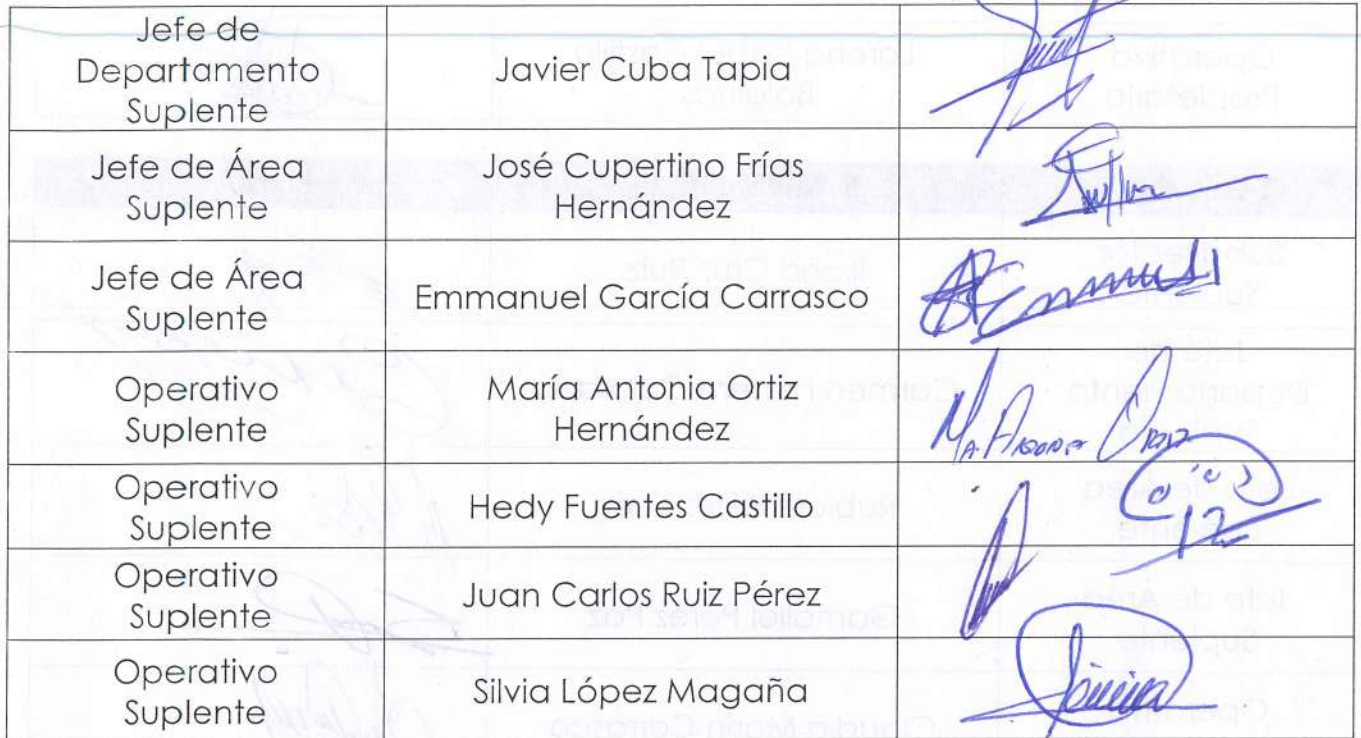 Jefe de
Departamento
Suplente
Javier Cuba Tapia
Jefe de Área
Suplente
José Cupertino Frías
Hernández
Jefe de Área
Suplente
Emmanuel García Carrasco
Emmanuel
Operativo
Suplente
María Antonia Ortiz
Hernández
Ma. Antonia Ortiz
Operativo
Suplente
Hedy Fuentes Castillo
Operativo
Suplente
Juan Carlos Ruiz Pérez
Operativo
Suplente
Silvia López Magaña